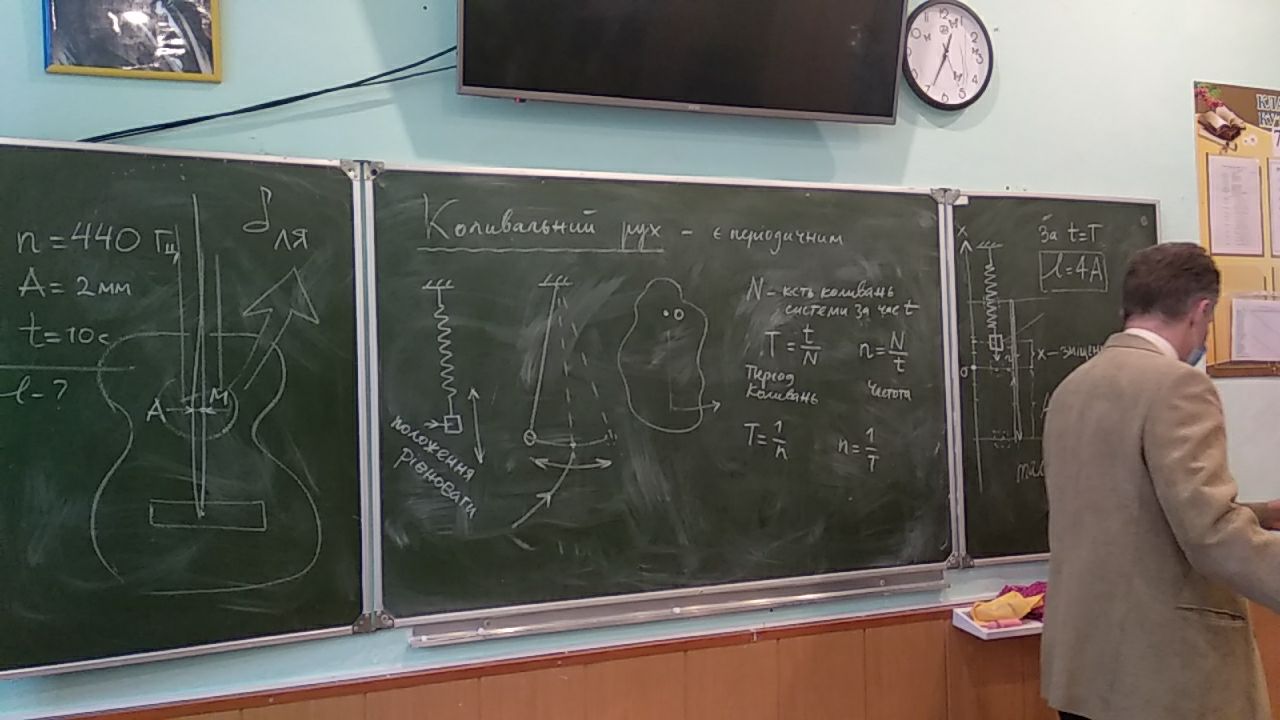 n = 440 Гц
A = 2 мм
t = 10 с
l - ?
ля
A
M
Коливальний рух - є періодичним
положення
рівноваги
O
N - к-сть коливань
системи за час t
T = t/N
n = N/t
Період
коливань
Частота
T = 1/n
n = 1/T
x
За t = T
l = 4A
0
x - зміщен
КЛА